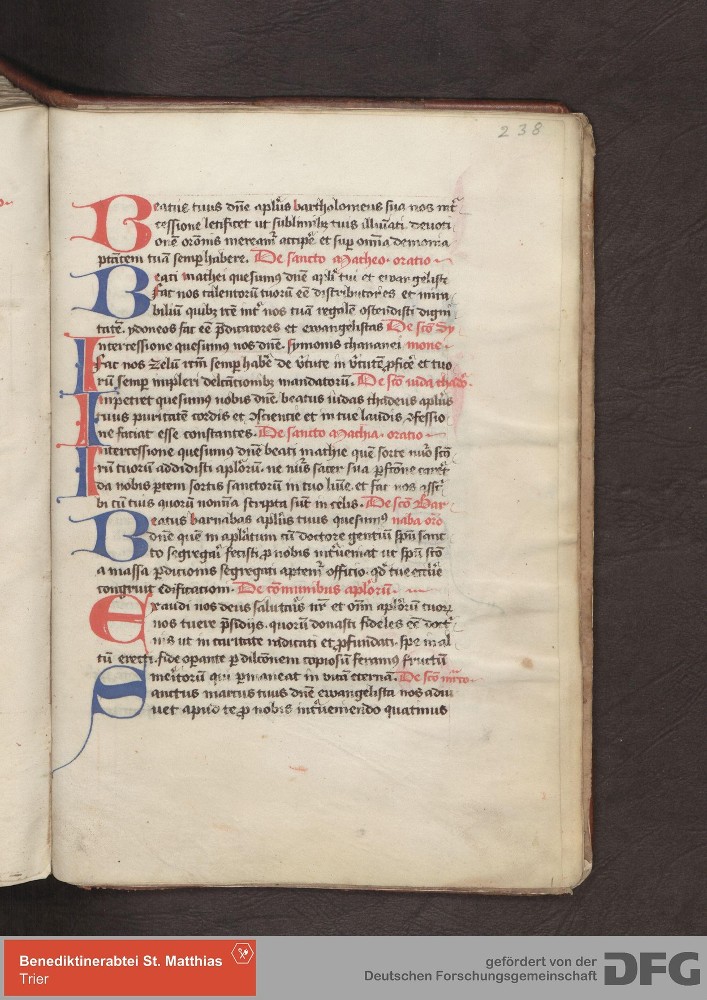 238
Beatus tuus dn̄e apl̄us bartholomeus sua nos int̄
cessione letificet ut sublimib; tuis illuīati deuoti
onē orōnis mereamr̄ accipe et sup omīa demonia
ptātem tuā semp habere. De sancto Matheo oratio
Beati mathei quesumus dn̄e apl̄i tui et ewangeliste
fac nos talentorū tuorū eē distributores et mira
biliū quib; itē int̄ nos tuā regalē ostendisti digni
tatē. ydoneos fac eē p̄dicatores et ewangelistas De scō sy
Intercessione quesumus nos dn̄e. symonis chananei mone
fac nos zelū itm̄ semp habē de v̄tute in v̄tutē p̄ficē et tuo
rū semp impleri delectātiomb; mandatorū. De scō iuda thadō
Impetret quesumus nobis dn̄e. beatus iudas thadeus apl̄us
tuus puritatē cordis et ɔscientie et in tue laudis ɔfessio
ne faciat esse constantes. De sancto Mathia. oratio
Intercessione quesumus dn̄e beati mathie quē sorte nūo scō
rū tuorū addidisti apl̄orū. ne
da nobis ptem sortis sanctorū in tuo liīe. et fac nos
bi cū tuis quorū nomīa scripta sūt in celis. De scō Bar
Beatus barnabas apl̄us tuus quesumus naba orō
dn̄e quē in apl̄atum cū doctore gentiū spū sanc
to segregari fecisti, p nobis int̄ueniat ut spū scō
a massa pdicionis segregati aptemr̄ officio. qd̄ tue eccl̄ie
congruit edificationi. De cōmunibus apl̄orū.
Exaudi nos deus salutaris nr̄ et om̄ apl̄orū tuorꝝ
nos tuere p̄sidijs. quorū donasti fideles eē doct̄
nis ut in caritate radicati et pfundati. spe in al
tū erecti. fide opante p dilcōnem copiosū feramus fructū
meritorū qui pmaneat in vitā eternā. De scō marco
Sanctus marcus tuus dn̄e ewangelista nos adiu
uet apud te p nobis int̄ueniendo quatinus
Benediktinerabtei St. Matthias
Trier
gefördert von der
Deutschen Forschungsgemeinschaft
DFG